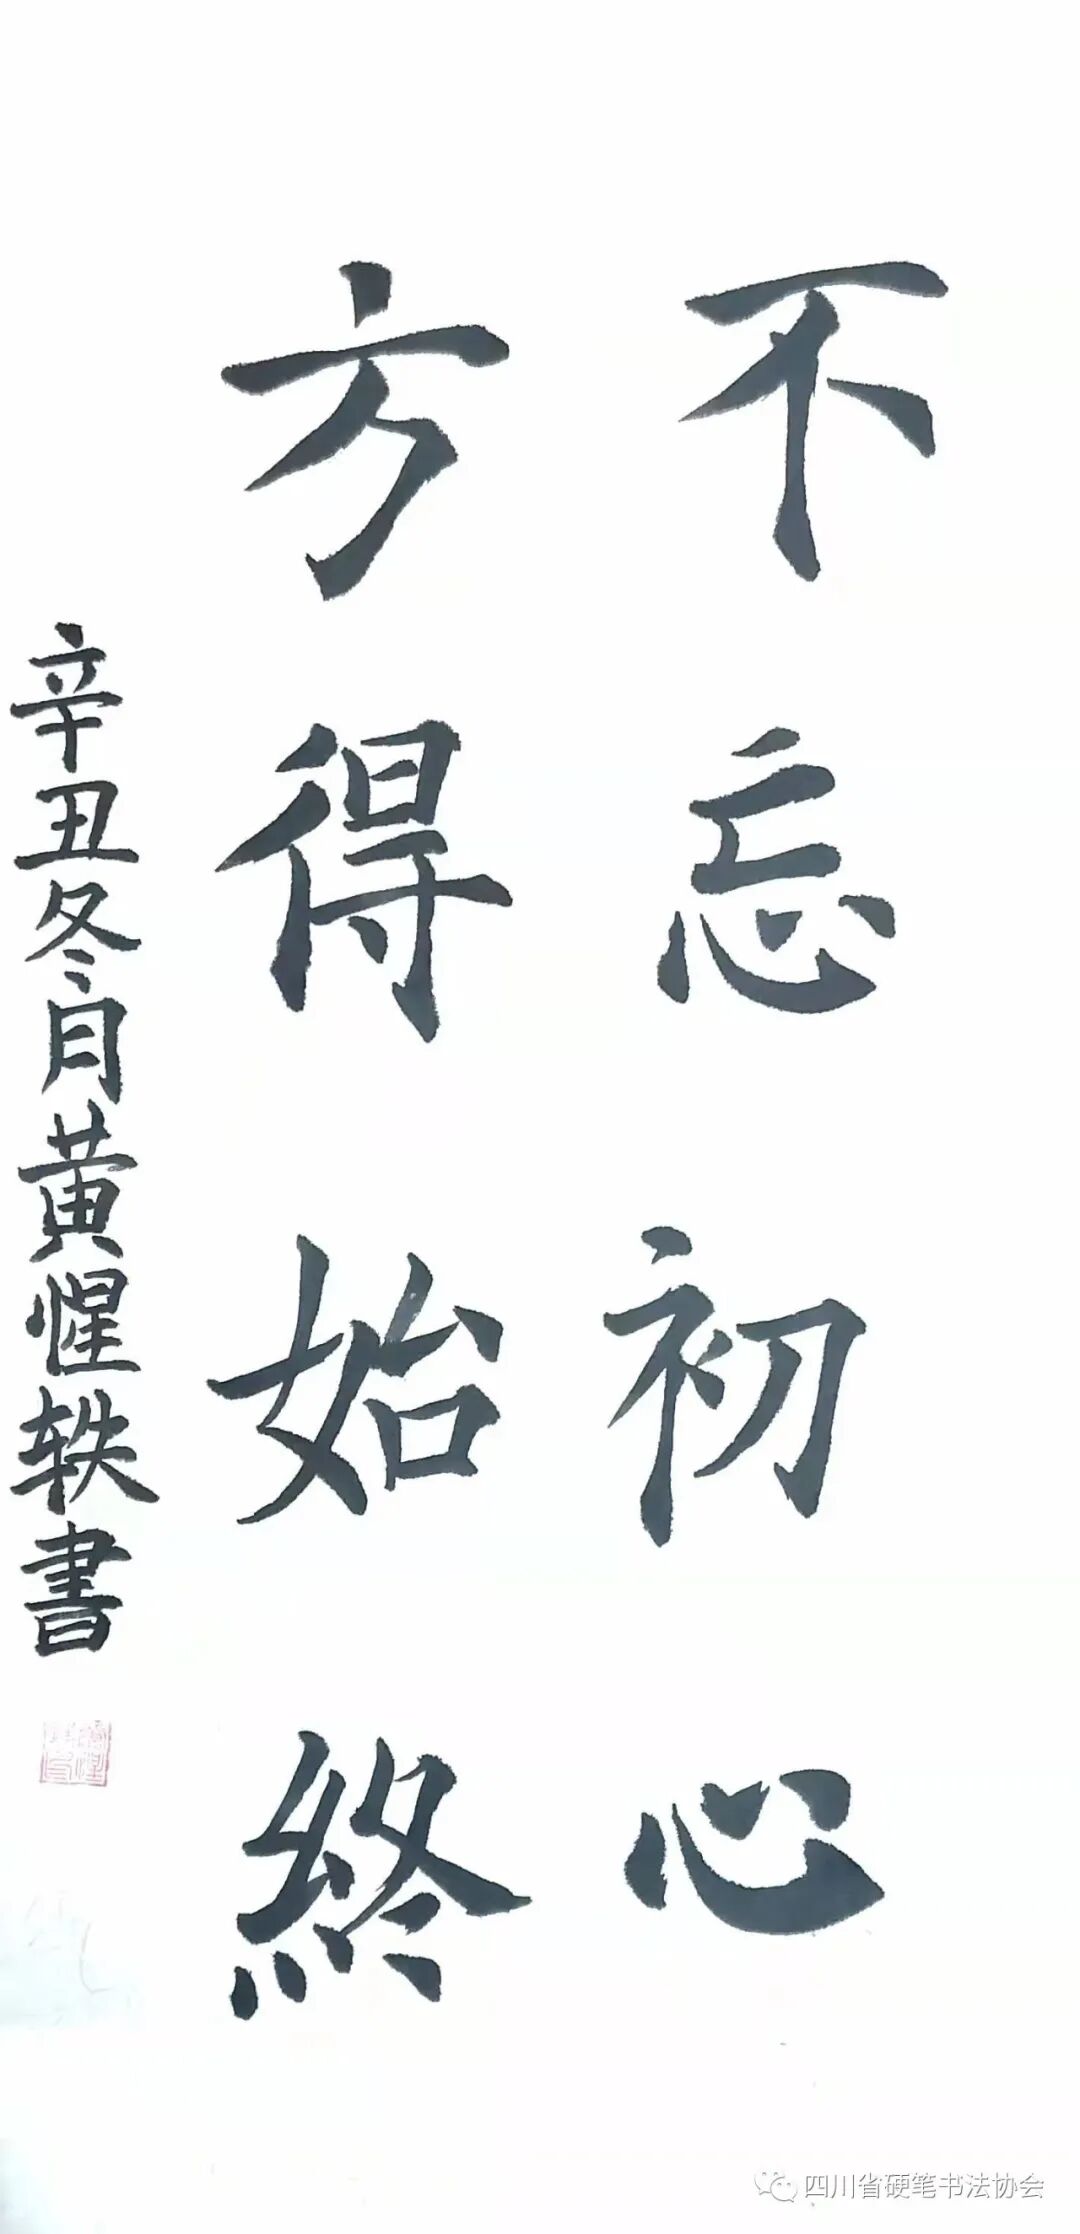 不忘初心
方得始終
辛丑冬月黄惺轶書
四川省硬笔书法协会